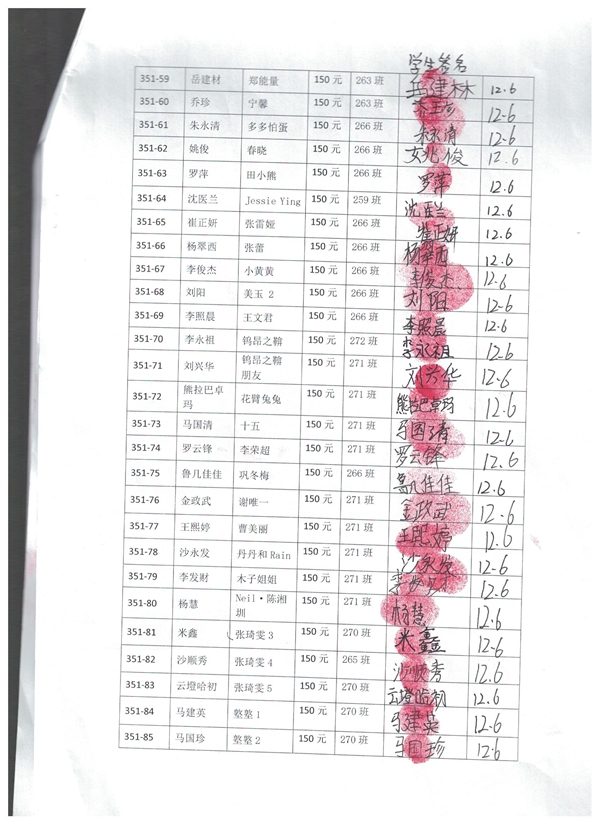 学生签名
351-59 岳建材 郑能量 150 元 263 班 岳建林 12.6
351-60 乔珍 宁馨 150 元 263 班 12-6
351-61 朱永清 多多怕蛋 150 元 266 班 朱永清 12-6
351-62 姚俊 春晓 150 元 266 班 姚俊 12.6
351-63 罗萍 田小熊 150 元 266 班 罗萍 12.6
351-64 沈医兰 Jessie Ying 150 元 259 班 沈医兰 12.6
351-65 崔正妍 张雷娅 150 元 266 班 崔正妍 12.6
351-66 杨翠西 张蕾 150 元 266 班 杨翠西 12.6
351-67 李俊杰 小黄黄 150 元 266 班 李俊杰 12-6
351-68 刘阳 美玉 2 150 元 266 班 刘阳 12-6
351-69 李照晨 王文君 150 元 266 班 李照晨 12.6
351-70 李永祖 鸨昂之鞥 150 元 272 班 李永祖 12-6
351-71 刘兴华 鸨昂之鞥 150 元 271 班 刘兴华 12-6
朋友
351-72 熊拉巴卓 花臂兔兔 150 元 271 班 熊拉巴卓玛 12.6
玛
351-73 马国清 十五 150 元 271 班 马国清 12-6
351-74 罗云锋 李荣超 150 元 271 班 罗云锋 12.6
351-75 鲁几佳佳 巩冬梅 150 元 266 班 12.6
351-76 金政武 谢唯一 150 元 271 班 金政武 12.6
351-77 王熙婷 曹美丽 150 元 271 班 王熙婷 12.6
351-78 沙永发 丹丹和 Rain 150 元 271 班 沙永发 12-6
351-79 李发财 木子姐姐 150 元 271 班 李发财 12.6
351-80 杨慧 Neil·陈湘 150 元 271 班 杨慧 12.6
圳
351-81 米鑫 张琦雯 3 150 元 270 班 米鑫 12-6
351-82 沙顺秀 张琦雯 4 150 元 265 班 沙顺秀 12.6
351-83 云墱哈初 张琦雯 5 150 元 270 班 12.6
351-84 马建英 墪墪 1 150 元 270 班 马建英 12-6
351-85 马国珍 墪墪 2 150 元 270 班 马国珍 12-6